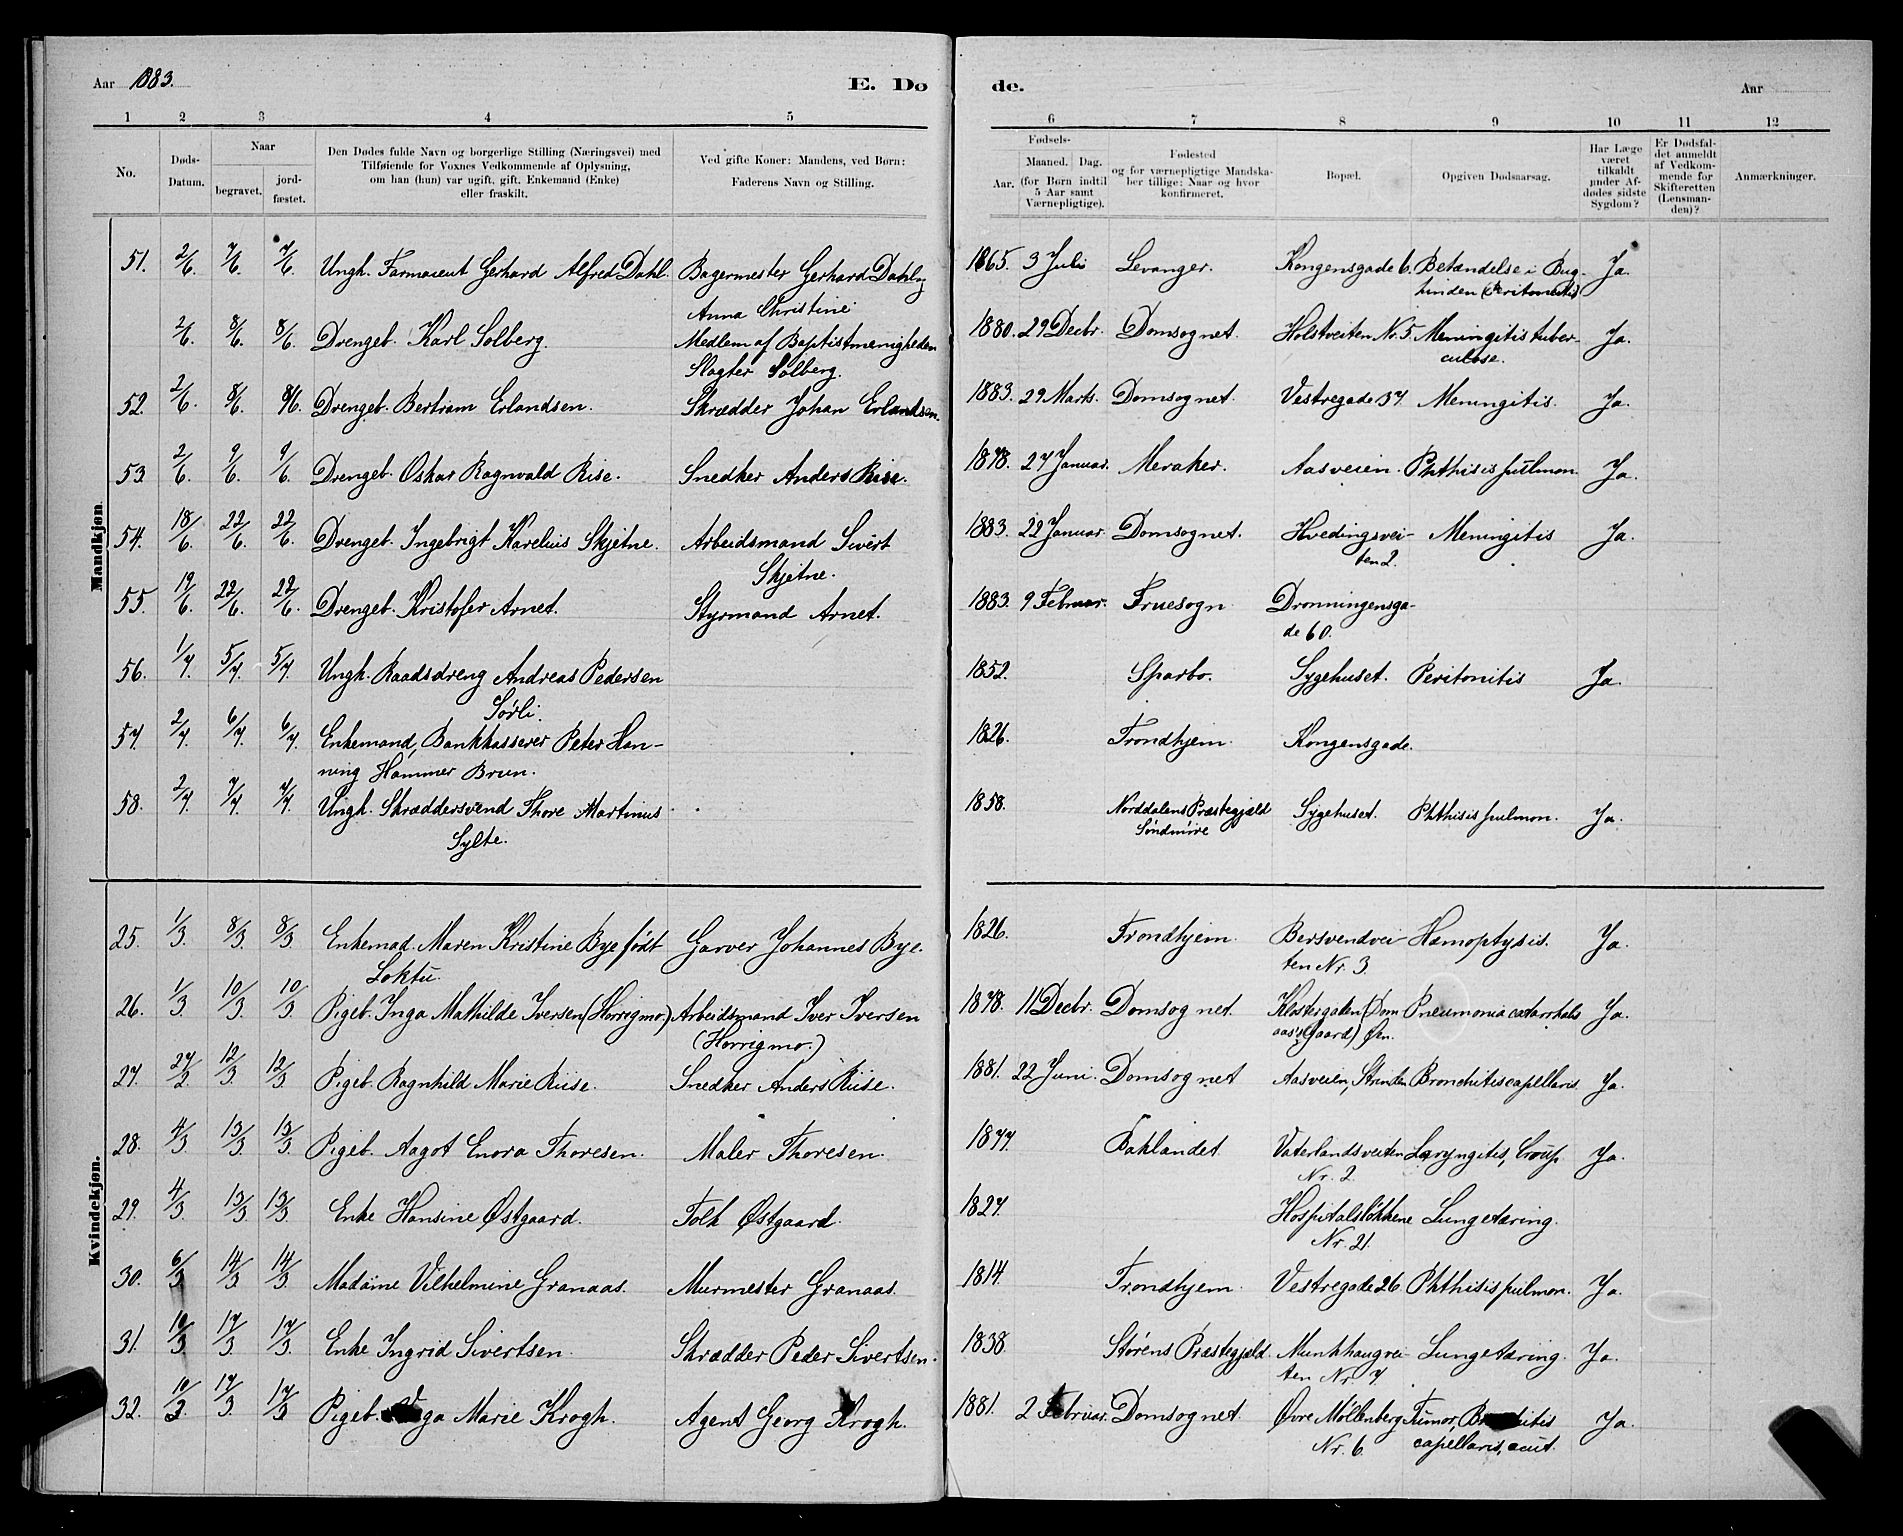 Aar 1883. E. Dø
de. Aar
1 2 3 4 5 6 7 8 9 10 11 12
No. Døds-Datum. Naar begravet. jord-fæstet. Den Dødes fulde Navn og borgerlige Stilling (Næringsvei) med Tilføiende for Voxnes Vedkommende af Oplysning, om han (hun) var ugift, gift, Enkemand (Enke) eller fraskilt. Ved gifte Koner: Mandens, ved Børn: Faderens Navn og Stilling. Fødsels- Aar. Maaned. Dag. (for Børn indtil 5 Aar samt Værnepligtige). Fødested og for værnepligtige Mandska-ber tillige: Naar og hvor konfirmeret. Bopæl. Opgiven Dødsaarsag. Har Læge været tilkaldt under Af-dødes sidste Sygdom? Er Dødsfal-det anmeldt af Vedkom-mende for Skifteretten (Lensman-den)? Anmærkninger.
Mandkjøn
51. 2/6. 7/6. 7/6. Ungk. Farmaceut Gerhard Alfred Dahl. Bagermester Gerhard Dahl og 1865. 3 Juli Levanger. Kongensgade 6. Betændelse i Bug- Ja.
Anna Christine hinden (Peritonitis)
2/6. 8/6. 8/6. Drengeb. Karl Solberg. Medlem af Baptistmenigheden 1880. 29 Decbr. Domsognet. Holstveiten Nr. 5. Meningitis tuber- Ja.
Slagter Solberg. culose.
52. 2/6. 8/6. 8/6. Drengeb. Bertram Erlandsen. Skrædder Johan Erlandsen. 1883. 29 Marts. Domsognet. Vestregade 37. Meningitis. Ja.
53. 2/6. 9/6. 9/6. Drengeb. Oskar Ragnvald Rise. Snedker Anders Rise. 1878. 27 Januar. Meraker. Aasveien. Phthisis pulmon. Ja.
54. 18/6. 22/6. 22/6. Drengeb. Ingebrigt Karelius Skjetne. Arbeidsmand Sivert 1883. 22 Januar. Domsognet. Hvedingsvei- Meningitis Ja.
Skjetne. ten 2.
55. 19/6. 22/6. 22/6. Drengeb. Kristofer Arnet. Styrmand Arnet. 1883. 9 Februar. Fruesogn Dronningensga-
de 60.
56. 1/7. 5/7. 5/7. Ungk. Raadsdreng Andreas Pedersen 1852. Sparbo. Sygehuset. Peritonitis Ja.
Sørli.
57. 2/7. 6/7. 6/7. Enkemand, Bankkasserer Peter Han- 1826. Trondhjem. Kongensgade.
ning Hammer Brun.
58. 2/7. 7/7. 7/7. Ungk. Skræddersvend Thore Martinus 1858. Norddalens Præstegjæld Sygehuset. Phthisis pulmon. Ja.
Sylte. Søndmøre
Kvindekjøn.
25. 1/3. 8/3. 8/3. Enkemad. Maren Kristine Bye født Garver Johannes Bye. 1826. Trondhjem. Bersvendvei- Hæmoptysis. Ja.
Loktu. ten Nr. 3.
26. 1/3. 10/3. 10/3. Pigeb. Inga Mathilde Iversen (Horrigmo.) Arbeidsmand Iver Iversen 1878. 11 Decbr. Domsognet. Klostergaden (Dom Pneumonia catarrhalis Ja.
(Horrigmo.) aas's Gaard) Øen.
27. 27/2. 12/3. 12/3. Pigeb. Ragnhild Marie Riise. Snedker Anders Riise. 1881. 22 Juni. Domsognet Aasveien, Strinden Bronchitis capellaris. Ja.
28. 4/3. 13/3. 13/3. Pigeb. Aagot Enora Thoresen. Maler Thoresen. 1877. Baklandet. Vaterlandsveiten Laryngitis, Croup Ja.
Nr. 2.
29. 4/3. 13/3. 13/3. Enke Hansine Østgaard. Tolk Østgaard. 1827. Hospitalsløkkene Lungetæring.
Nr. 21.
30. 6/3 14/3. 14/3. Madame Vilhelmine Granaas. Murmester Granaas. 1814. Trondhjem. Vestregade 26. Phthisis pulmon. Ja.
31. 10/3. 17/3. 17/3. Enke Ingrid Sivertsen. Skrædder Peder Sivertsen. 1838. Størens Præstegjæld. Munkhaugvei- Lungetæring. Ja.
ten Nr. 7
32. 10/3. 17/3. 17/3. Pigeb. Marie Krogh. Agent Georg Krogh. 1881. 2 Februar. Domsognet. Øvre Møllenberg Tumor, Ja.
Nr. 6. capellaris, acut.